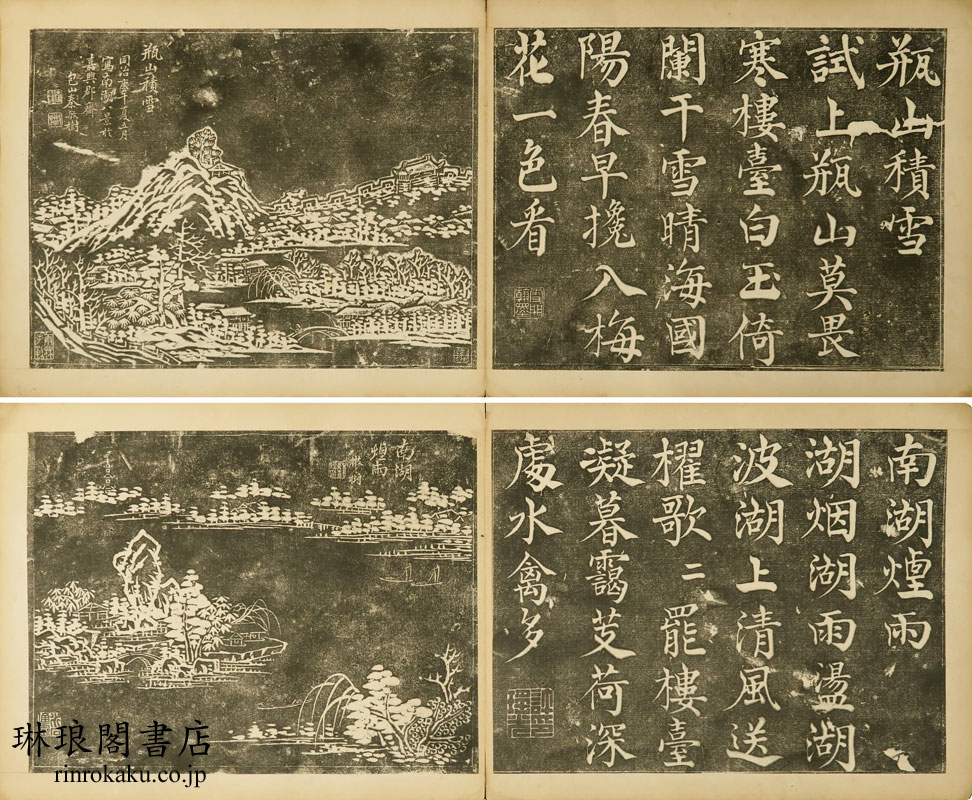 瓶山積雪
試上瓶山莫畏
寒樓臺白玉倚
闌干雪晴海國
陽春早攙入梅
花一色看
瓶山積雪
寫南湖景於
嘉興郡齋
南湖煙雨
湖烟湖雨盪湖
波湖上清風送
櫂歌二罷樓臺
凝暮靄芰荷深
處水禽多
南湖
烟雨
琳琅閣書店
rinrokaku.co.jp